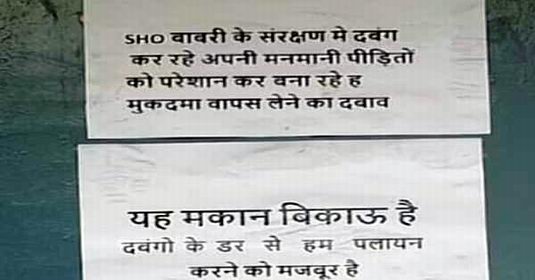 SHO बाबरी के संरक्षण मे दबंग
कर रहे अपनी मनमानी पीड़ितों
को परेशान कर बना रहे ह
मुकदमा वापस लेने का दबाव
यह मकान बिकाऊ है
दबंगो के डर से हम पलायन
करने को मजबूर है